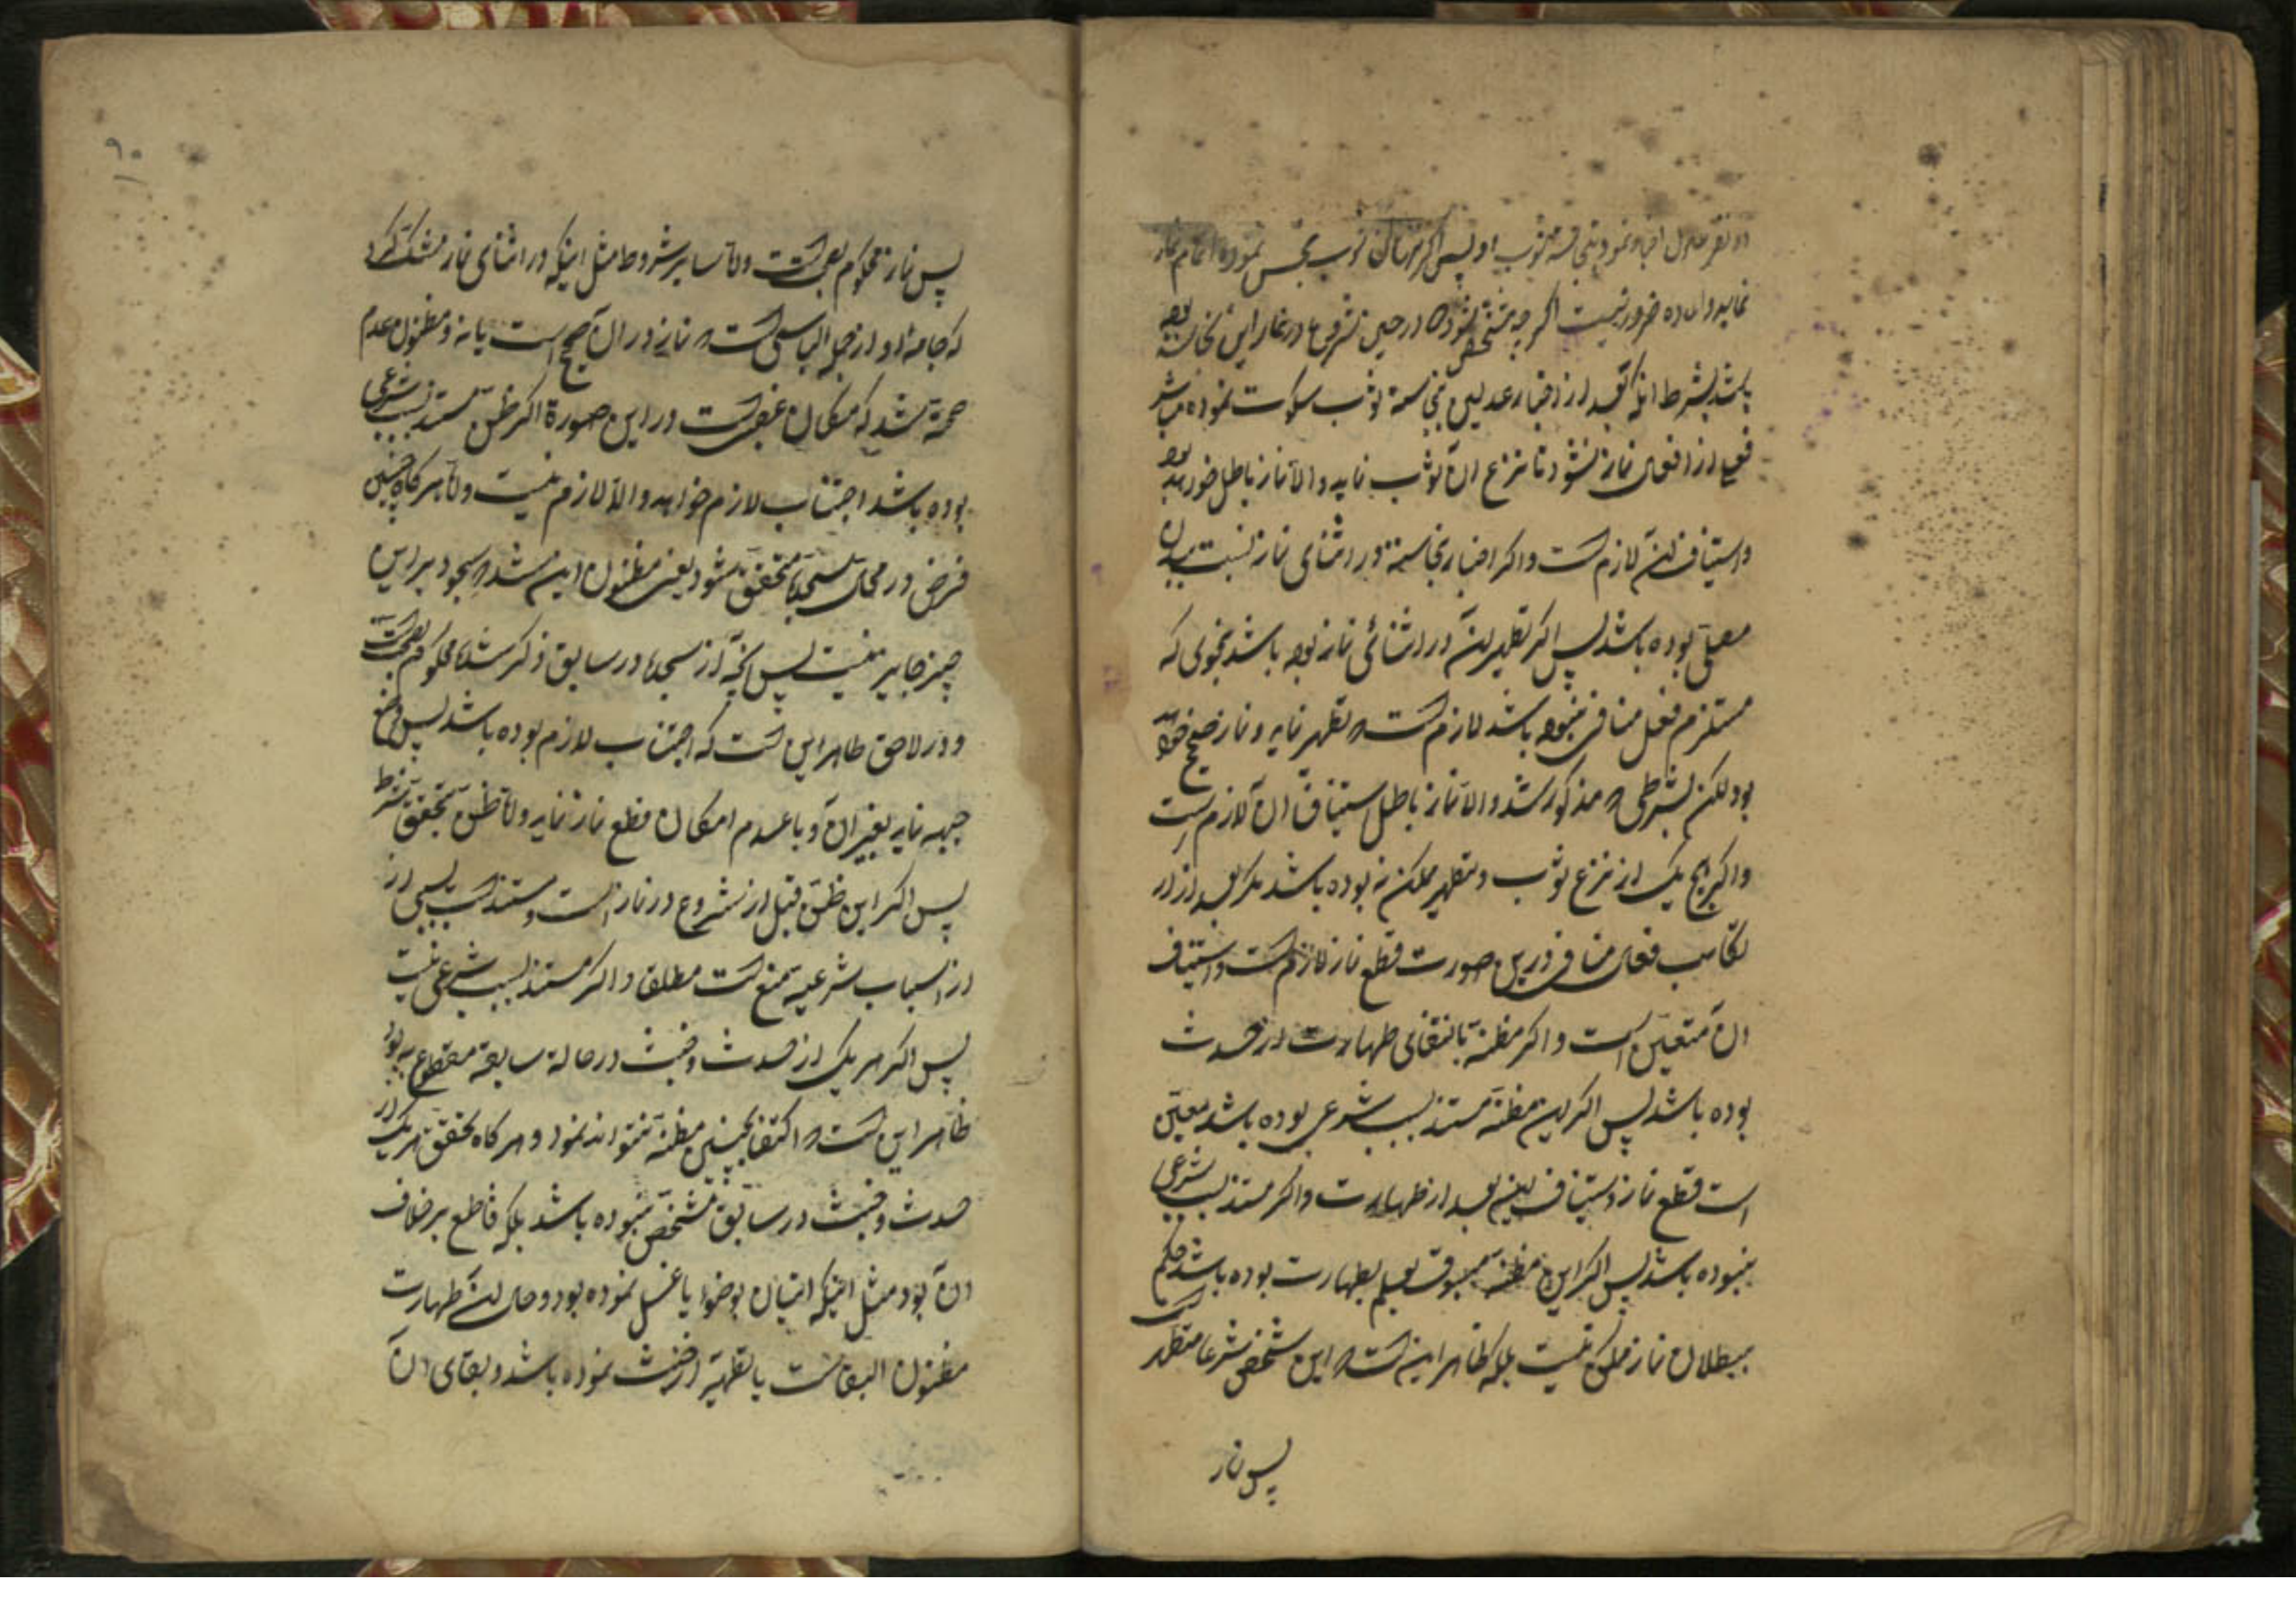 دو نفر عادل اخبار نمود بنجاسة ثوب او پس اگر نزع ثوب نجس نموده اتمام نماز
نماید ضرور نیست اگر چه مشخص شود که در حین شروع در نماز این نجاسة بوده
باشد بشرط آنکه بعد از اخبار عدلین بنجاسة ثوب سکوت نموده مباشر
فعلی از افعال نماز نشود تا نزع آن ثوب نماید والا نماز باطل خواهد بود
واستیناف آن لازم است واکر اخبار بنجاسة در اثنای نماز نسبت ببدن
مصلی بوده باشد پس اکر تطهیر آن در اثنای نماز بوجه باشد بنحوی که
مستلزم فعل منافی نبوده باشد لازم است که تطهیر نماید و نماز صحیح خواهد
بود لکن بشرطی که مذکور شد والا نماز باطل استیناف آن لازم است
واکر هیچ یک از نزع ثوب وتطهیر ممکن نبوده باشد مکر بعد از
ارتکاب فعل منافی درین صورت قطع نماز لازم است واستیناف
آن متعین است واکر مظنه بانتفای طهارت از حدث
بوده باشد پس اکر این مظنه مستند بسبب شرعی بوده باشد معین
است قطع نماز واستیناف آن بعد از طهارت واکر مستند بسبب شرعی
نبوده باشد پس اکر این مظنه مسبوق بعلم بطهارت بوده باشد حکم
ببطلان نماز ممکن نیست بلکه ظاهر این است که این شخص شرعا متطهر است
پس نماز
پس نماز محکوم بصحت است واما سایر شروط مثل اینکه در اثنای نماز شک کرد
که جامه او از جمله لباسی است که نماز در آن صحیح است یا نه ومظنون عدم
صحة شد یا که مکان غصبی است در این صورة اکر ظن مستند بسبب شرعی
بوده باشد اجتناب لازم خواهد والا لازم نیست واما هرکاه چنین
فرض در محل سجده متحقق شود یعنی مظنون این شد که سجود بر این
چیز جایز نیست پس آنچه از سجدها در سابق ذکر شد محکوم بصحت است
ودر لاحق ظاهر این است که اجتناب لازم بوده باشد پس وضع
جبهه نماید بغیر آن وبا عدم امکان قطع نماز نماید واما ظن بتحقق شرط
پس اکر این ظن قبل از شروع در نماز است ومستند بسببی از
از اسباب شرعیه متبع است مطلقا واکر مستند بسبب شرعی نیست
پس اکر هر یک از حدث وخبث در حالة سابقة مقطوع به بود
ظاهر این است که اکتفا بچنین مظنه نمیتواند نمود وهرکاه تحقق هریک از
حدث وخبث در سابق مشخص نبوده باشد بلکه قاطع برخلاف
آن بود مثل اینکه اتیان بوضو یا غسل نموده بود وحال آن طهارت
مظنون البقاست یا تطهیر از خبث نموده باشد وبقای آن